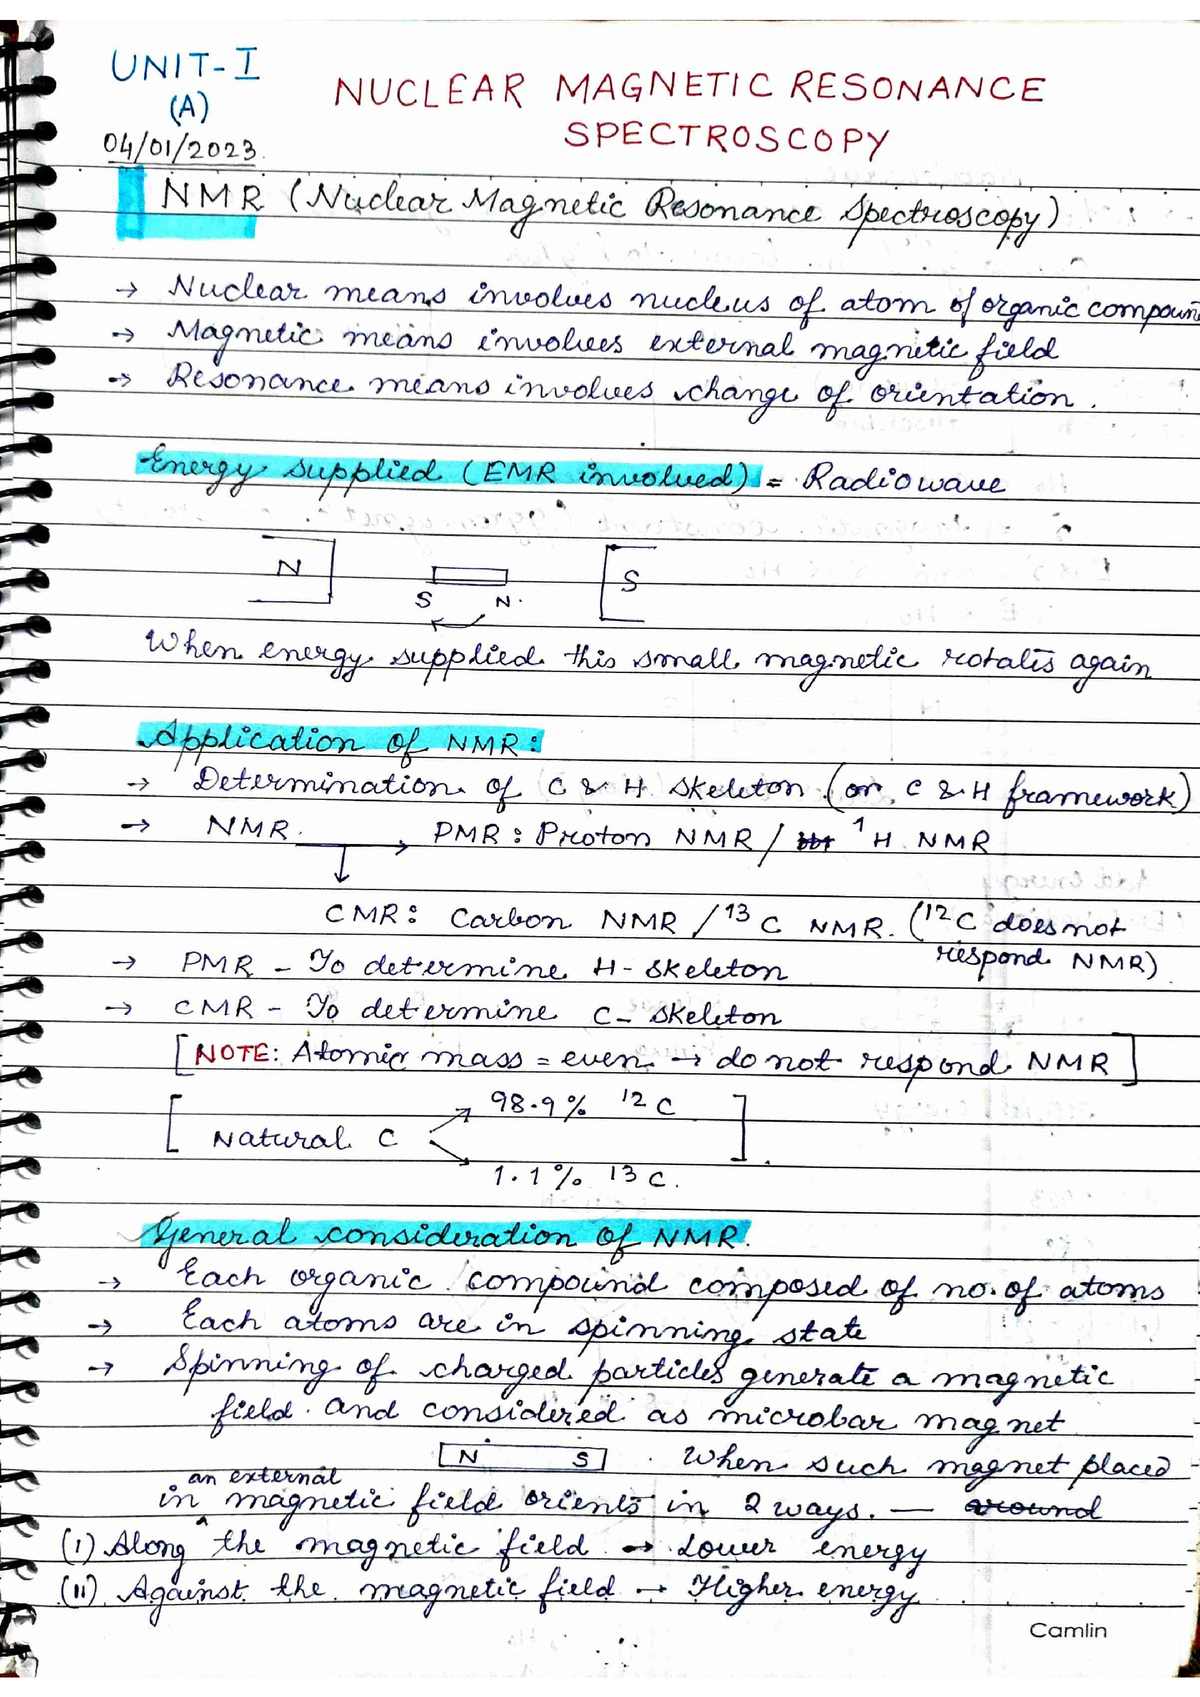 UNIT-I
(A)
04/01/2023
NUCLEAR MAGNETIC RESONANCE
SPECTROSCOPY
NMR (Nuclear Magnetic Resonance Spectroscopy)
→ Nuclear means involves nucleus of atom of organic compoun
→ Magnetic means involves external magnetic field
→ Resonance means involves change of orientation.
Energy supplied (EMR involved) = Radiowave
N
S N
S
When energy supplied this small magnetic rotates again
Application of NMR:
→ Determination of C & H skeleton (or C & H framework)
→ NMR → PMR: Proton NMR / ¹H NMR
↓
CMR: Carbon NMR / ¹³C NMR. (¹²C does not
respond NMR)
→ PMR - To determine H-skeleton
→ CMR - To determine C-skeleton
[NOTE: Atomic mass = even → do not respond NMR]
98.9% 12C
[Natural C]
1.1% 13C.
General consideration of NMR.
→ Each organic compound composed of no. of atoms
→ Each atoms are in spinning state
→ Spinning of charged particles generate a magnetic
field and considered as microbar magnet
N S . When such magnet placed
an external
in magnetic field orients in 2 ways. — around
(i) Along the magnetic field → Lower energy
(ii) Against the magnetic field → Higher energy
Camlin